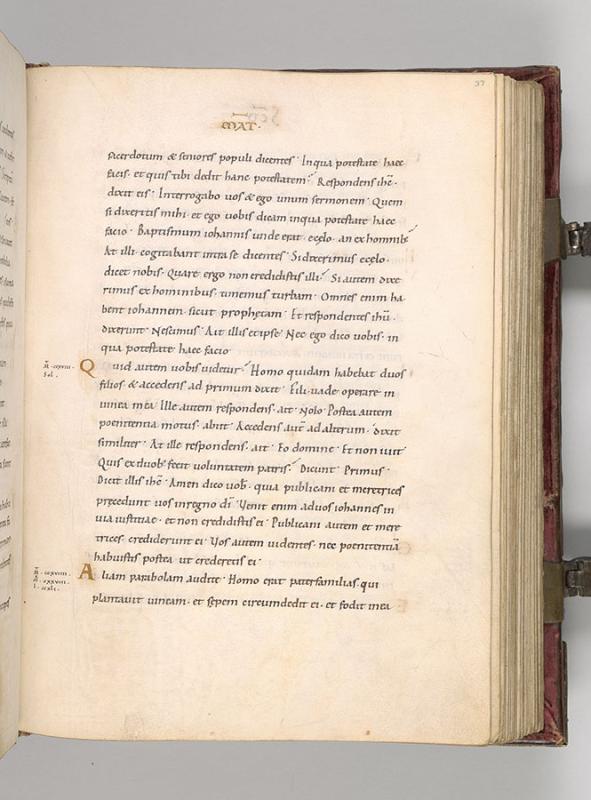 37
MAT·
sacerdotum & seniores populi dicentes· In qua potestate haec
facis· et quis tibi dedit hanc potestatem· Respondens ihc̄·
dixit eis· Interrogabo uos & ego unum sermonem· Quem
si dixeritis mihi· et ego uobis dicam in qua potestate haec
facio· Baptismum iohannis unde erat· e cęlo· an ex hominib·
At illi cogitabant intra se dicentes· Si dixerimus e cęlo·
dicet nobis· Quare ergo non credidistis illi· Si autem dixe
rimus ex hominibus· timemus turbam· Omnes enim ha
bent iohannem· sicut prophetam· Et respondentes ihū·
dixerunt· Nescimus· Ait illis et ipse· Nec ego dico uobis· in
qua potestate haec facio·
Quid autem uobis uidetur· Homo quidam habebat duos
filios· & accedens ad primum dixit· Fili uade operare in
uinea mea· Ille autem respondens· ait· Nolo· Postea autem
poenitentia motus· abiit· Accedens aut̄ ad alterum· dixit
similiter· At ille respondens· ait· Eo domine· Et non iuit·
Quis ex duob· fecit uoluntatem patris· Dicunt· Primus·
Dicit illis ihc̄· Amen dico uob· quia publicani et meretrices
pręcedunt uos in regno dī· Uenit enim ad uos iohannes in
uia iustitiae· et non credidistis ei· Publicani autem et mere
trices crediderunt ei· Uos autem uidentes· nec poenitentiā
habuistis postea ut crederetis ei·
Aliam parabolam audite· Homo erat paterfamilias· qui
plantauit uineam· et sępem circumdedit ei· et fodit in ea